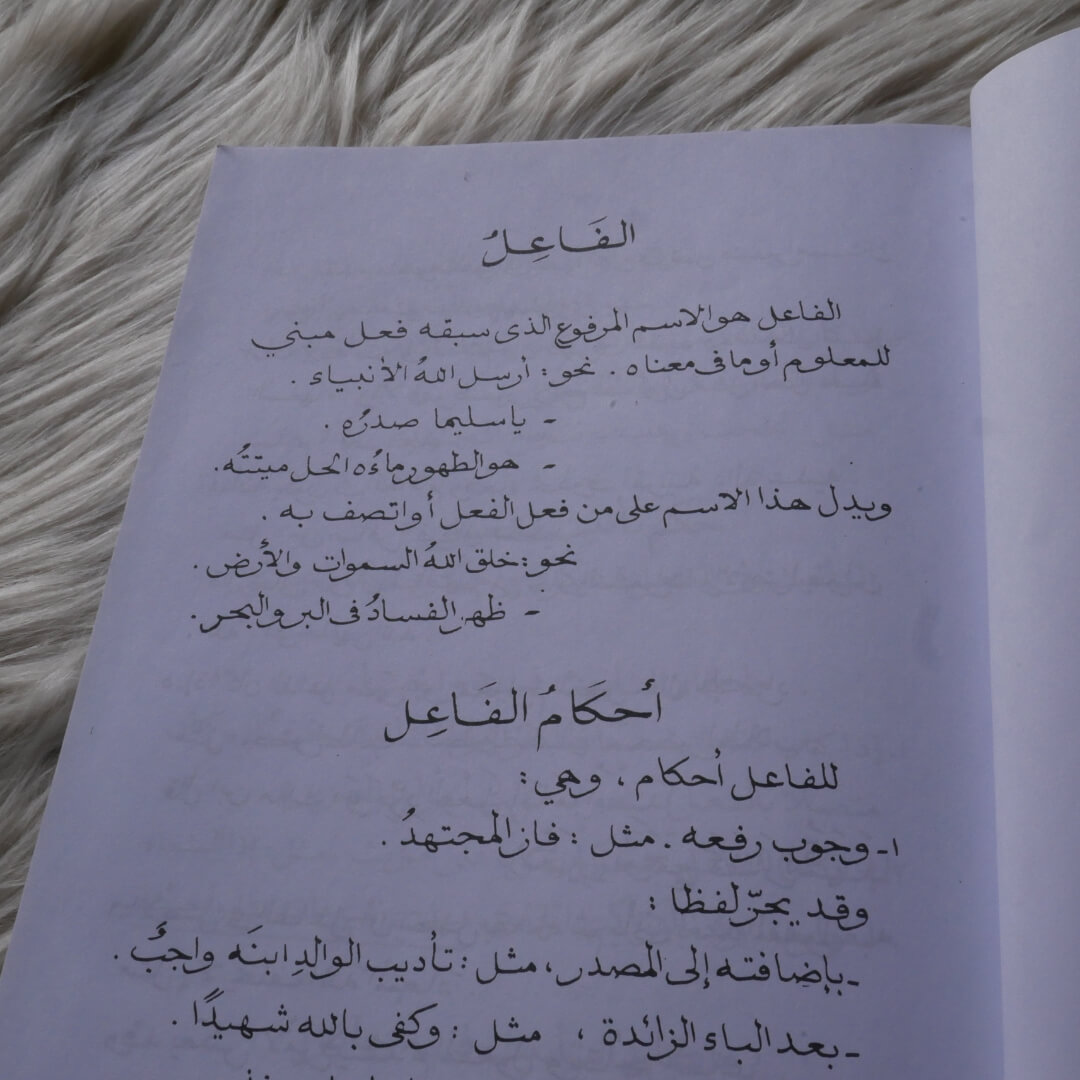 الفَاعِلُ
الفاعل هو الاسم المرفوع الذى سبقه فعل مبني
للمعلوم أو ما فى معناه . نحو : أرسل اللهُ الأنبياء .
- يا سليما صدرُه .
- هو الطهور ماءُه الحل ميتتُه .
ويدل هذا الاسم على من فعل الفعل أو اتصف به .
نحو : خلق اللهُ السموات والأرض .
- ظهر الفسادُ فى البر والبحر .
أحكَامُ الفَاعِل
للفاعل أحكام ، وهي :
١- وجوب رفعه . مثل : فاز المجتهدُ .
وقد يجرّ لفظا :
- بإضافته إلى المصدر ، مثل : تأديب الوالدِ ابنَه واجبٌ .
- بعد الباء الزائدة ، مثل : وكفى بالله شهيدًا .